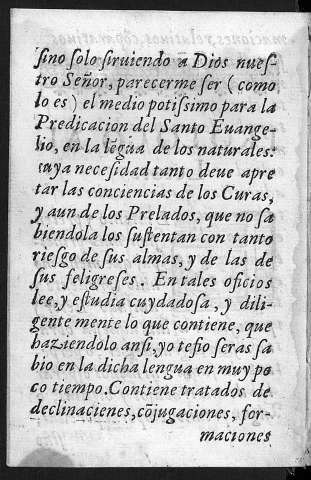 ſino ſolo ſiruiendo a Dios nueſ-
tro Señor, parecerme ſer (como
lo es) el medio potiſsimo para la
Predicacion del Santo Euange-
lio, en la lẽgua de los naturales:
cuya neceſidad tanto deue apre
tar las conciencias de los Curas,
y aun de los Prelados, que no ſa
biendola los ſuſtentan con tanto
rieſgo de sus almas, y de las de
ſus feligreſes. En tales oficios
lee, y eſtudia cuydadoſa, y dili-
gente mente lo que contiene, que
haziendolo anſi, yo teſio ſeras ſa
bio en la dicha lengua en muy po
co tiempo. Contiene tratados de
declinacienes, cõjugaciones, for-
maciones